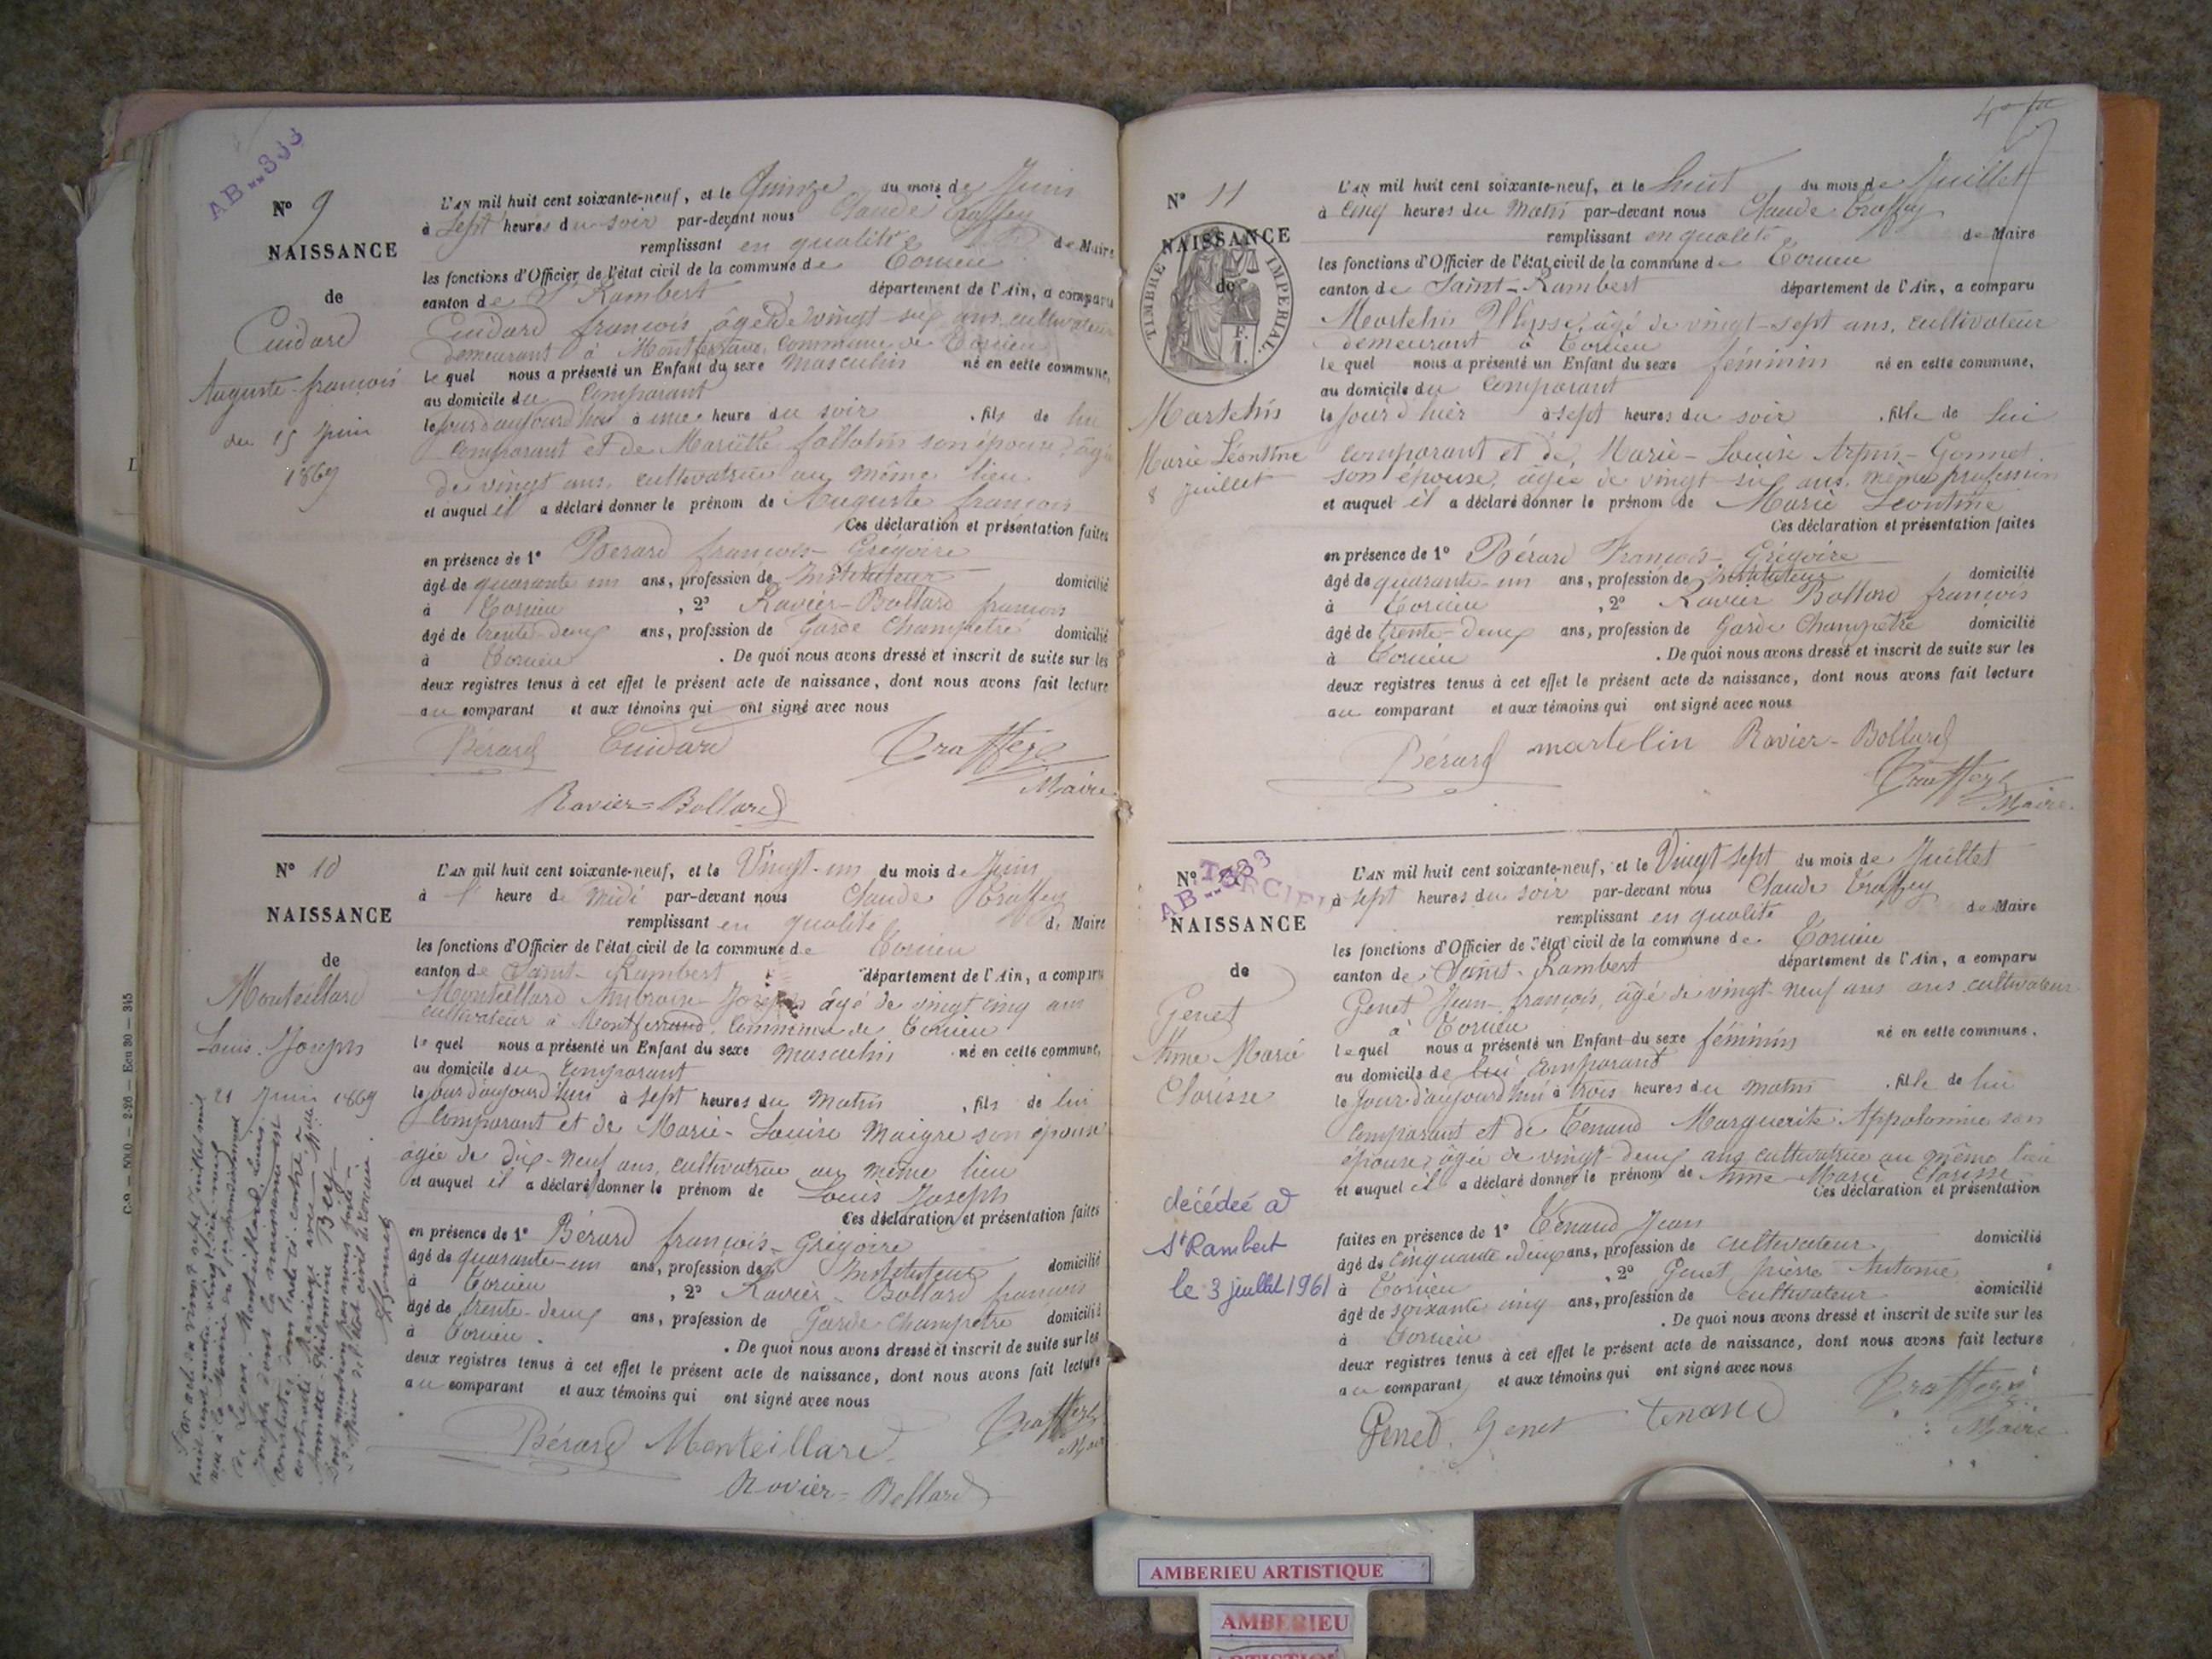 AB..333
N° 9
NAISSANCE
de
Cuidard
Auguste-françois
du 15 Juin
1869
L'AN mil huit cent soixante-neuf, et le Quinze du mois de Juin
à Sept heures du soir par-devant nous Claude Traffey
remplissant en qualité de Maire
les fonctions d'Officier de l'état civil de la commune de Torcieu
canton de St Rambert département de l'Ain, a comparu
Cuidard françois, âgé de vingt-six ans, cultivateur
demeurant à Montferrand, Commune de Torcieu
lequel nous a présenté un Enfant du sexe masculin né en cette commune,
au domicile du Comparant
le Jour d'aujourd'hui à une heure du soir, fils de lui
Comparant et de Mariette fallotin son épouse, âgée
de vingt ans, cultivatrice au même lieu
et auquel il a déclaré donner le prénom de Auguste françois
Ces déclaration et présentation faites
en présence de 1° Bérard françois-Grégoire
âgé de quarante un ans, profession de Instituteur domicilié
à Torcieu, 2° Ravier-Bollard françois
âgé de trente-deux ans, profession de Garde Champêtre domicilié
à Torcieu. De quoi nous avons dressé et inscrit de suite sur les
deux registres tenus à cet effet le présent acte de naissance, dont nous avons fait lecture
au comparant et aux témoins qui ont signé avec nous
Bérard Cuidard Traffey
Maire
Ravier=Bollard
N° 10
NAISSANCE
de
Monteillard
Louis Joseph
21 Juin 1869
L'AN mil huit cent soixante-neuf, et le Vingt-un du mois de Juin
à l' heure de Midi par-devant nous Claude Traffey
remplissant en qualité de Maire
les fonctions d'Officier de l'état civil de la commune de Torcieu
canton de Saint-Rambert département de l'Ain, a comparu
Monteillard Ambroise Joseph âgé de vingt cinq ans
cultivateur à Montferrand, Commune de Torcieu
lequel nous a présenté un Enfant du sexe masculin né en cette commune,
au domicile du Comparant
le jour d'aujourd'hui à sept heures du matin, fils de lui
Comparant et de Marie-Louise Maigre son épouse
âgée de dix-neuf ans, cultivatrice au même lieu
et auquel il a déclaré donner le prénom de Louis Joseph
Ces déclaration et présentation faites
en présence de 1° Bérard françois-Grégoire
âgé de quarante-un ans, profession de Instituteur domicilié
à Torcieu, 2° Ravier-Bollard françois
âgé de trente-deux ans, profession de Garde-Champêtre domicilié
à Torcieu. De quoi nous avons dressé et inscrit de suite sur les
deux registres tenus à cet effet le présent acte de naissance, dont nous avons fait lecture
au comparant et aux témoins qui ont signé avec nous
Bérard Monteillard Traffey
Ravier=Bollard
Par acte du vingt sept Juillet mil
huit cent quatre vingt dix neuf
de Lyon, Monteillard Louis
Joseph dont la naissance est
constatée dans l'acte ci-contre a
contracté mariage avec
Philomène
Dont mention par nous faite
officier de l'état civil de Torcieu
C.9. — 5000 — 2-26 — Ecu 30 — 345
N° 11
NAISSANCE
de
TIMBRE IMPERIAL
F. 1.
Martelin
Marie Léontine
8 juillet
L'AN mil huit cent soixante-neuf, et le huit du mois de Juillet
à Cinq heures du Matin par-devant nous Claude Traffey
remplissant en qualité de Maire
les fonctions d'Officier de l'état civil de la commune de Torcieu
canton de Saint-Rambert département de l'Ain, a comparu
Martelin Ulysse, âgé de vingt-sept ans, cultivateur
demeurant à Torcieu
lequel nous a présenté un Enfant du sexe féminin né en cette commune,
au domicile du Comparant
le Jour d'hier à sept heures du soir, fille de lui
comparant et de Marie-Louise Arpin-Gonnet
son épouse, âgée de vingt-six ans, même profession
et auquel il a déclaré donner le prénom de Marie Léontine
Ces déclaration et présentation faites
en présence de 1° Bérard François-Grégoire
âgé de quarante-un ans, profession de Instituteur domicilié
à Torcieu, 2° Ravier Bollard françois
âgé de trente-deux ans, profession de Garde Champêtre domicilié
à Torcieu. De quoi nous avons dressé et inscrit de suite sur les
deux registres tenus à cet effet le présent acte de naissance, dont nous avons fait lecture
au comparant et aux témoins qui ont signé avec nous
Bérard martelin Ravier-Bollard
Traffey
Maire
N°
AB..333
TORCIEU
NAISSANCE
de
Genet
Anne Marie
Clarisse
décédée à
St Rambert
le 3 juillet 1961
L'AN mil huit cent soixante-neuf, et le Vingt sept du mois de Juillet
à sept heures du soir par-devant nous Claude Traffey
remplissant en qualité de Maire
les fonctions d'Officier de l'état civil de la commune de Torcieu
canton de Saint-Rambert département de l'Ain, a comparu
Genet Jean-françois, âgé de vingt-neuf ans ans cultivateur
à Torcieu
lequel nous a présenté un Enfant du sexe féminin né en cette commune,
au domicile de lui Comparant
le Jour d'aujourd'hui à trois heures du matin, fille de lui
Comparant et de Tenand Marguerite Appolonine son
épouse, âgée de vingt-deux ans cultivatrice au même lieu
et auquel il a déclaré donner le prénom de Anne-Marie Clarisse
Ces déclaration et présentation
faites en présence de 1° Tenand Jean
âgé de cinquante-deux ans, profession de cultivateur domicilié
à Torcieu, 2° Genet pierre Antoine
âgé de soixante cinq ans, profession de cultivateur domicilié
à Torcieu. De quoi nous avons dressé et inscrit de suite sur les
deux registres tenus à cet effet le présent acte de naissance, dont nous avons fait lecture
au comparant et aux témoins qui ont signé avec nous
Genet Genet tenand Traffey
Maire
AMBERIEU ARTISTIQUE
AMBERIEU
ARTISTIQUE